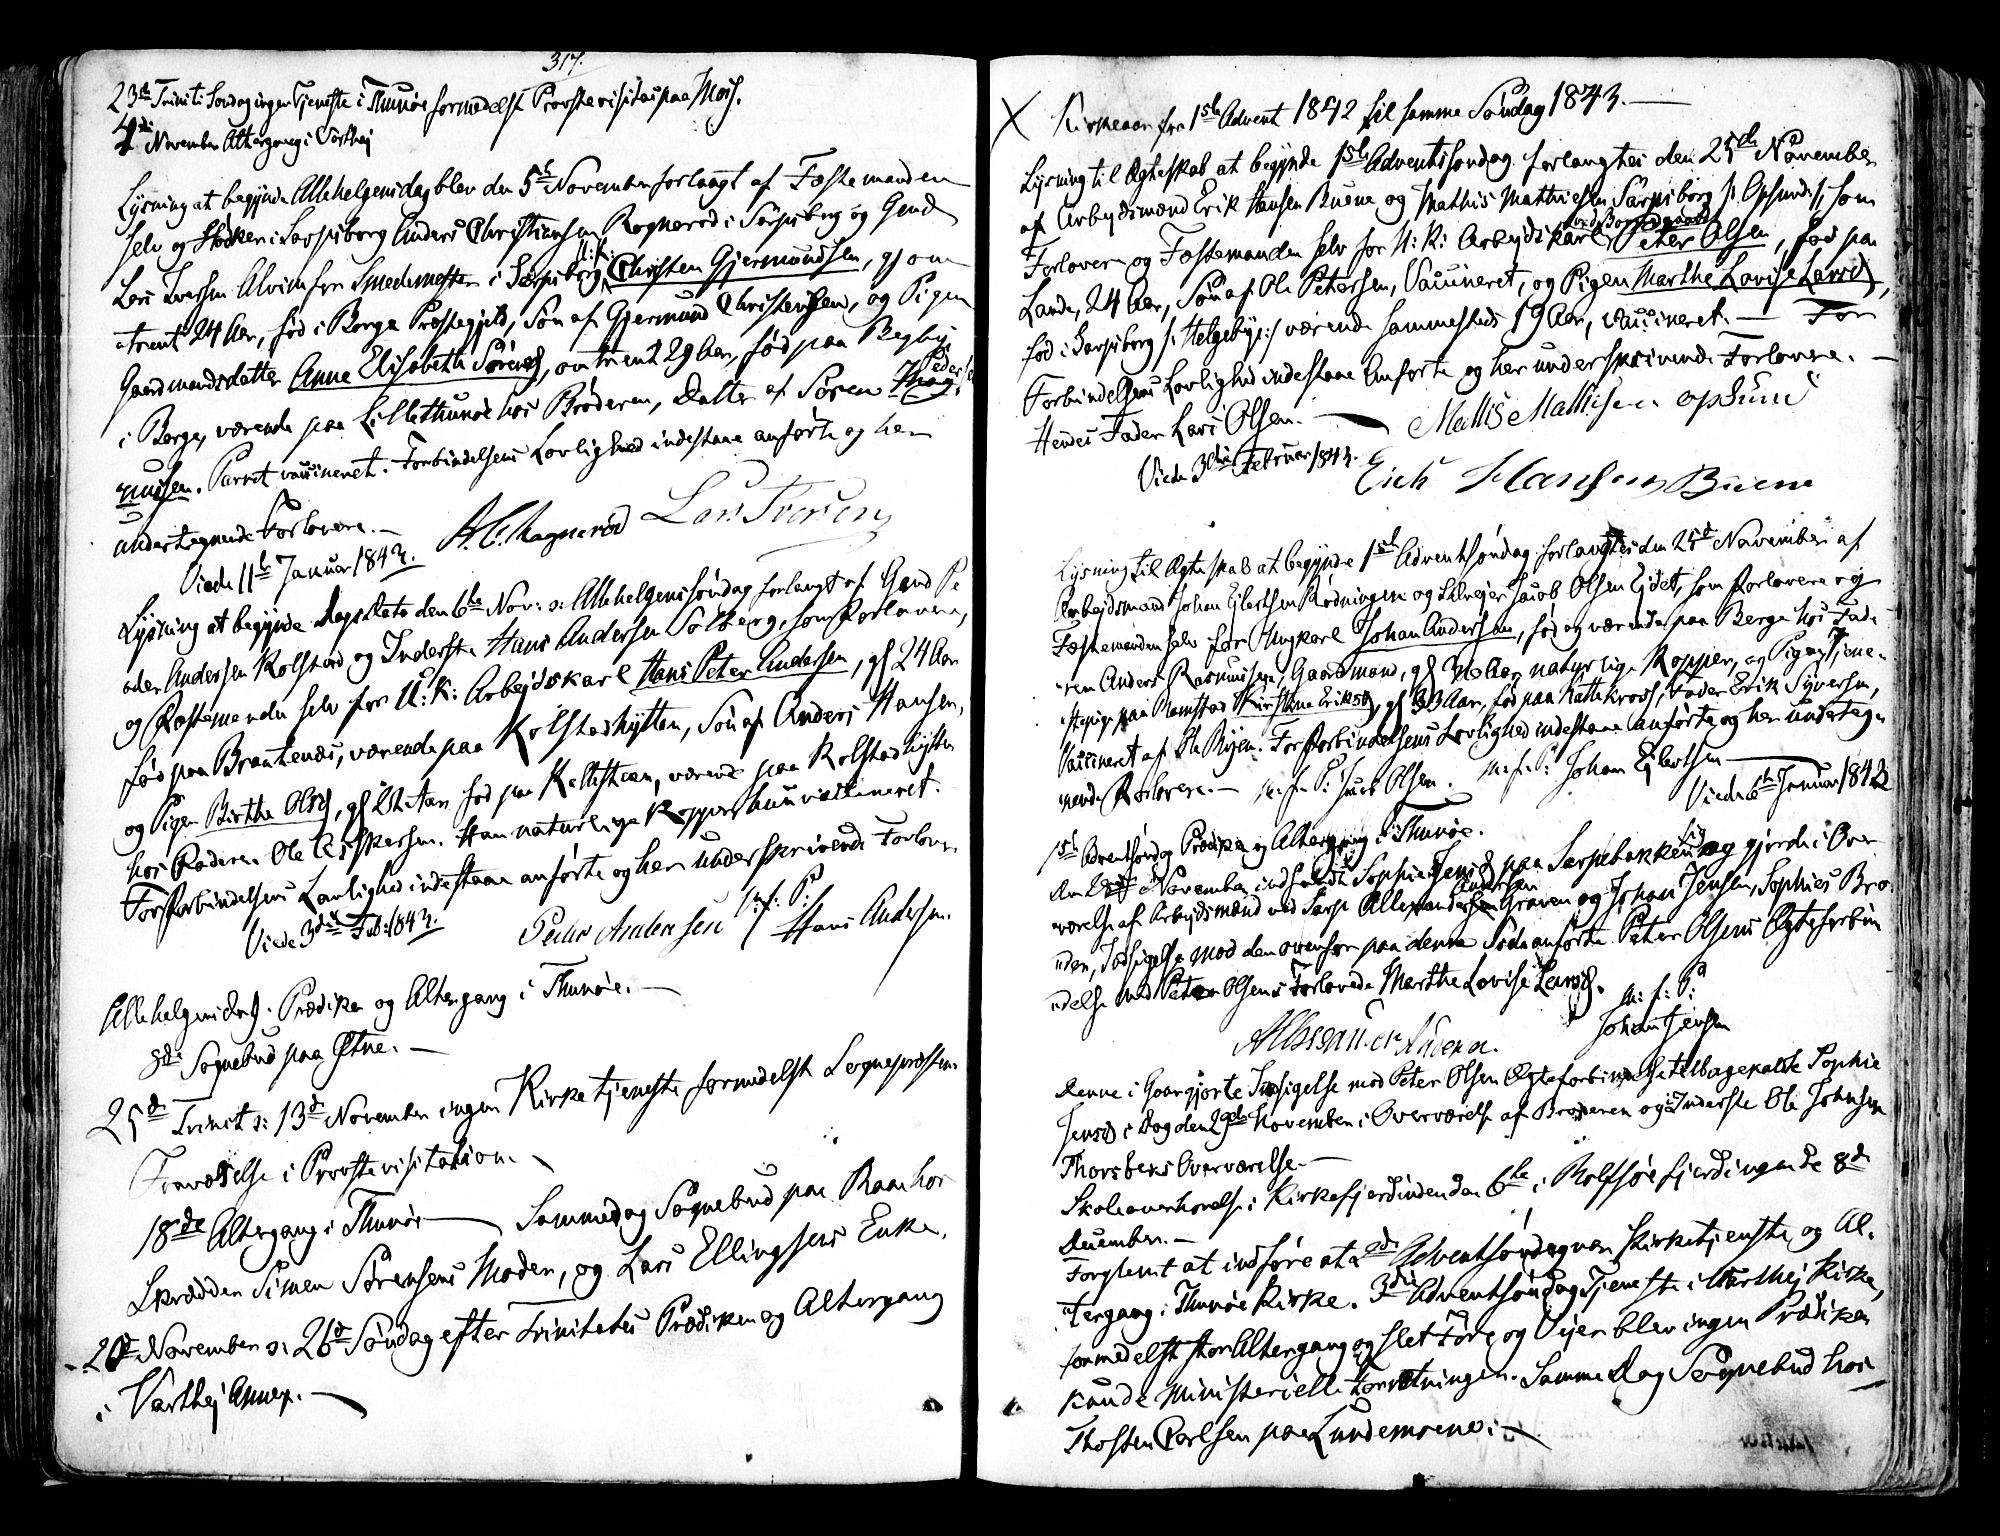 317.
23de Trinit: Søndag ingen Tjeneste i Thunøe formedelst Provstevisitas paa Mois.
4de November Altergang i Varthej
Lysning at begynde Allehelgensdag blev den 5te November forlangt af Fæstemanden
selv og i Sarpsborg Anders Christiansen Ragnerød i Sarpsborg og Gmd
Lars Iversen Alvim for Smedemester i Sarpsborg U:K: Christen Gjermundsen, gl om-
trent 24 Aar, fød i Borge Præstegjeld, Søn af Gjermund Christensen, og Pigen
Gaardmandsdatter Anne Elisabeth Sørensd, omtrent 29 Aar, fød paa Begby
i Borge, værende paa Lillethunøe hos Broderen, Datter af Søren Peders
. Parret vaccineret. Forbindelsens Lovlighed indestaae anførte og her
undertegnede Forlovere.—
A. C. Ragnerød Lars Iversen
Viede 11te Januar 1843.
Lysning at begynde den 6te Nov: ɔ: Allehelgenssøndag forlangt af Gmd Pe
der Andersen Kolstad og Inderste Hans Andersen Solberg, som Forlovere,
og Fæstemanden selv for U: K: Arbejdskarl Hans Peter Andersen, gl 24 Aar
fød paa Brantenæs, værende paa Kolstadhytten, Søn af Anders Hansen,
og Pigen Birthe Olsd, gl 21 Aar fød paa Kallisteen, værende paa Kolstadhytten
hos Faderen Ole Aslkersen. Han naturlige Kopper hun vaccineret.
For Forbindelsens Lovlighed indestaae anførte og her underskrivende Forlovere
Viede 3die Feb: 1843.
Peder Andersen
m. f. P:
Hans Andersen.
Allehelgensdag. Prædiken og Altergang i Thunøe.—
8de Sognebud paa Østne.—
25de Trinit ɔ: 13de November ingen Kirketjeneste formedelst Sognepræstens
Fraværelse i Provstevisitation.
18de Altergang i Thunøe— Sammedag Sognebud paa Raae hos
Skrædder Simen Sørensens Moder, og Lars Ellingsens Enke.
20de November ɔ: 26de Søndag efter Trinitatis Prædiken og Altergang
i Varthej Annex.—
X Kirkeaar fra 1ste Advent 1842 til samme Søndag 1843.—
Lysning til Ægteskab at begynde 1ste Adventssøndag forlangtes den 25de November
af Arbejdsmænd Erik Hansen Buene og Mathis Mathiesen Sarpsborg /: Opsund :/, som
Forlovere og Fæstemanden selv for U: K: Arbejdskarl ved Borregaard Peter Olsen, fød paa
Lande, 24 Aar, Søn af Ole Petersen, Vaccineret, og Pigen Marthe Lovise Larsd,
fød i Sarpsborg /: Helgeby :/ værende sammesteds 19 Aar, vaccineret.— For
Forbindelsens Lovlighed indestaae Anførte og her underskrivende Forlovere.—
Hendes Fader Lars Olsen.—
Mathis Mathisen opsund
Viede 3die Februar 1843.
Erich Hansen Buene
Lysning til Ægteskab at begynde 1ste Adventsøndag forlangtes den 25de November af
Arbejdsmand Johan Ejlertsen Rødningen og Selvejer Jacob Olsen Ejdet, som Forlovere og
Fæstemanden selv for Ungkarl Johan Andersen, fød og værende paa Berge hos Fade
ren Anders Rasmussen, Gaardmand, gl Aar, naturlige Kopper, og Pigen Tjene-
stepige paa Ramstad Kirstine Eriksd, gl 33 Aar, fød paa , Fader Erik Syversen,
Vaccineret af Ole Bøjen. For Forbindelsens Lovlighed indestaae anførte og her underteg-
nende Forlovere.— m. f. P: Jacob Olsen. m. f. P: Johan Ejlertsen—
Viede 6te Januar 1843
1ste Adventsøndag Prædiken og Altergang i Thunøe.
Den 28de November indfandt Sophie Jensd paa Sarpebakken sig og gjorde i Over
værelse af Arbejdsmænd ved Sarp Allexander Andersen Graven og Johan Jensen, Sophies Bro-
der, Indsigelse mod den ovenfor paa denne Side anførte Peter Olsens Ægteforbin
delse med Peter Olsens Forlovede Marthe Lovise Larsd.
Allexander Anders.
m: f: P:
Johan Jensen
Denne i Gaar gjorte Indsigelse mod Peter Olsens Ægteforbindelse tilbagekaldte Sophie
Jensd i Dag den 29de November i Overværelse af Broderen og Inderste Ole Johnsen
Thorsbers Overværelse.—
Skoleoverhørelse i Kirkefjerdingen den 6te i Rolfsøe fjerdingen de 8de
December.—
Forglemt at indføre at 2den Adventsøndag var Kirketjeneste og Al-
tergang i Thunøe Kirke. 3die Adventsøndag Tjeneste i Varthej Kirke,
formedelst stor Altergang og slet Føre og Vejer blev ingen Prædiken
kunde Ministerielle Forretninger. Samme Dag Sognebud hos
Thosten Carlsen paa Lundemoene.—